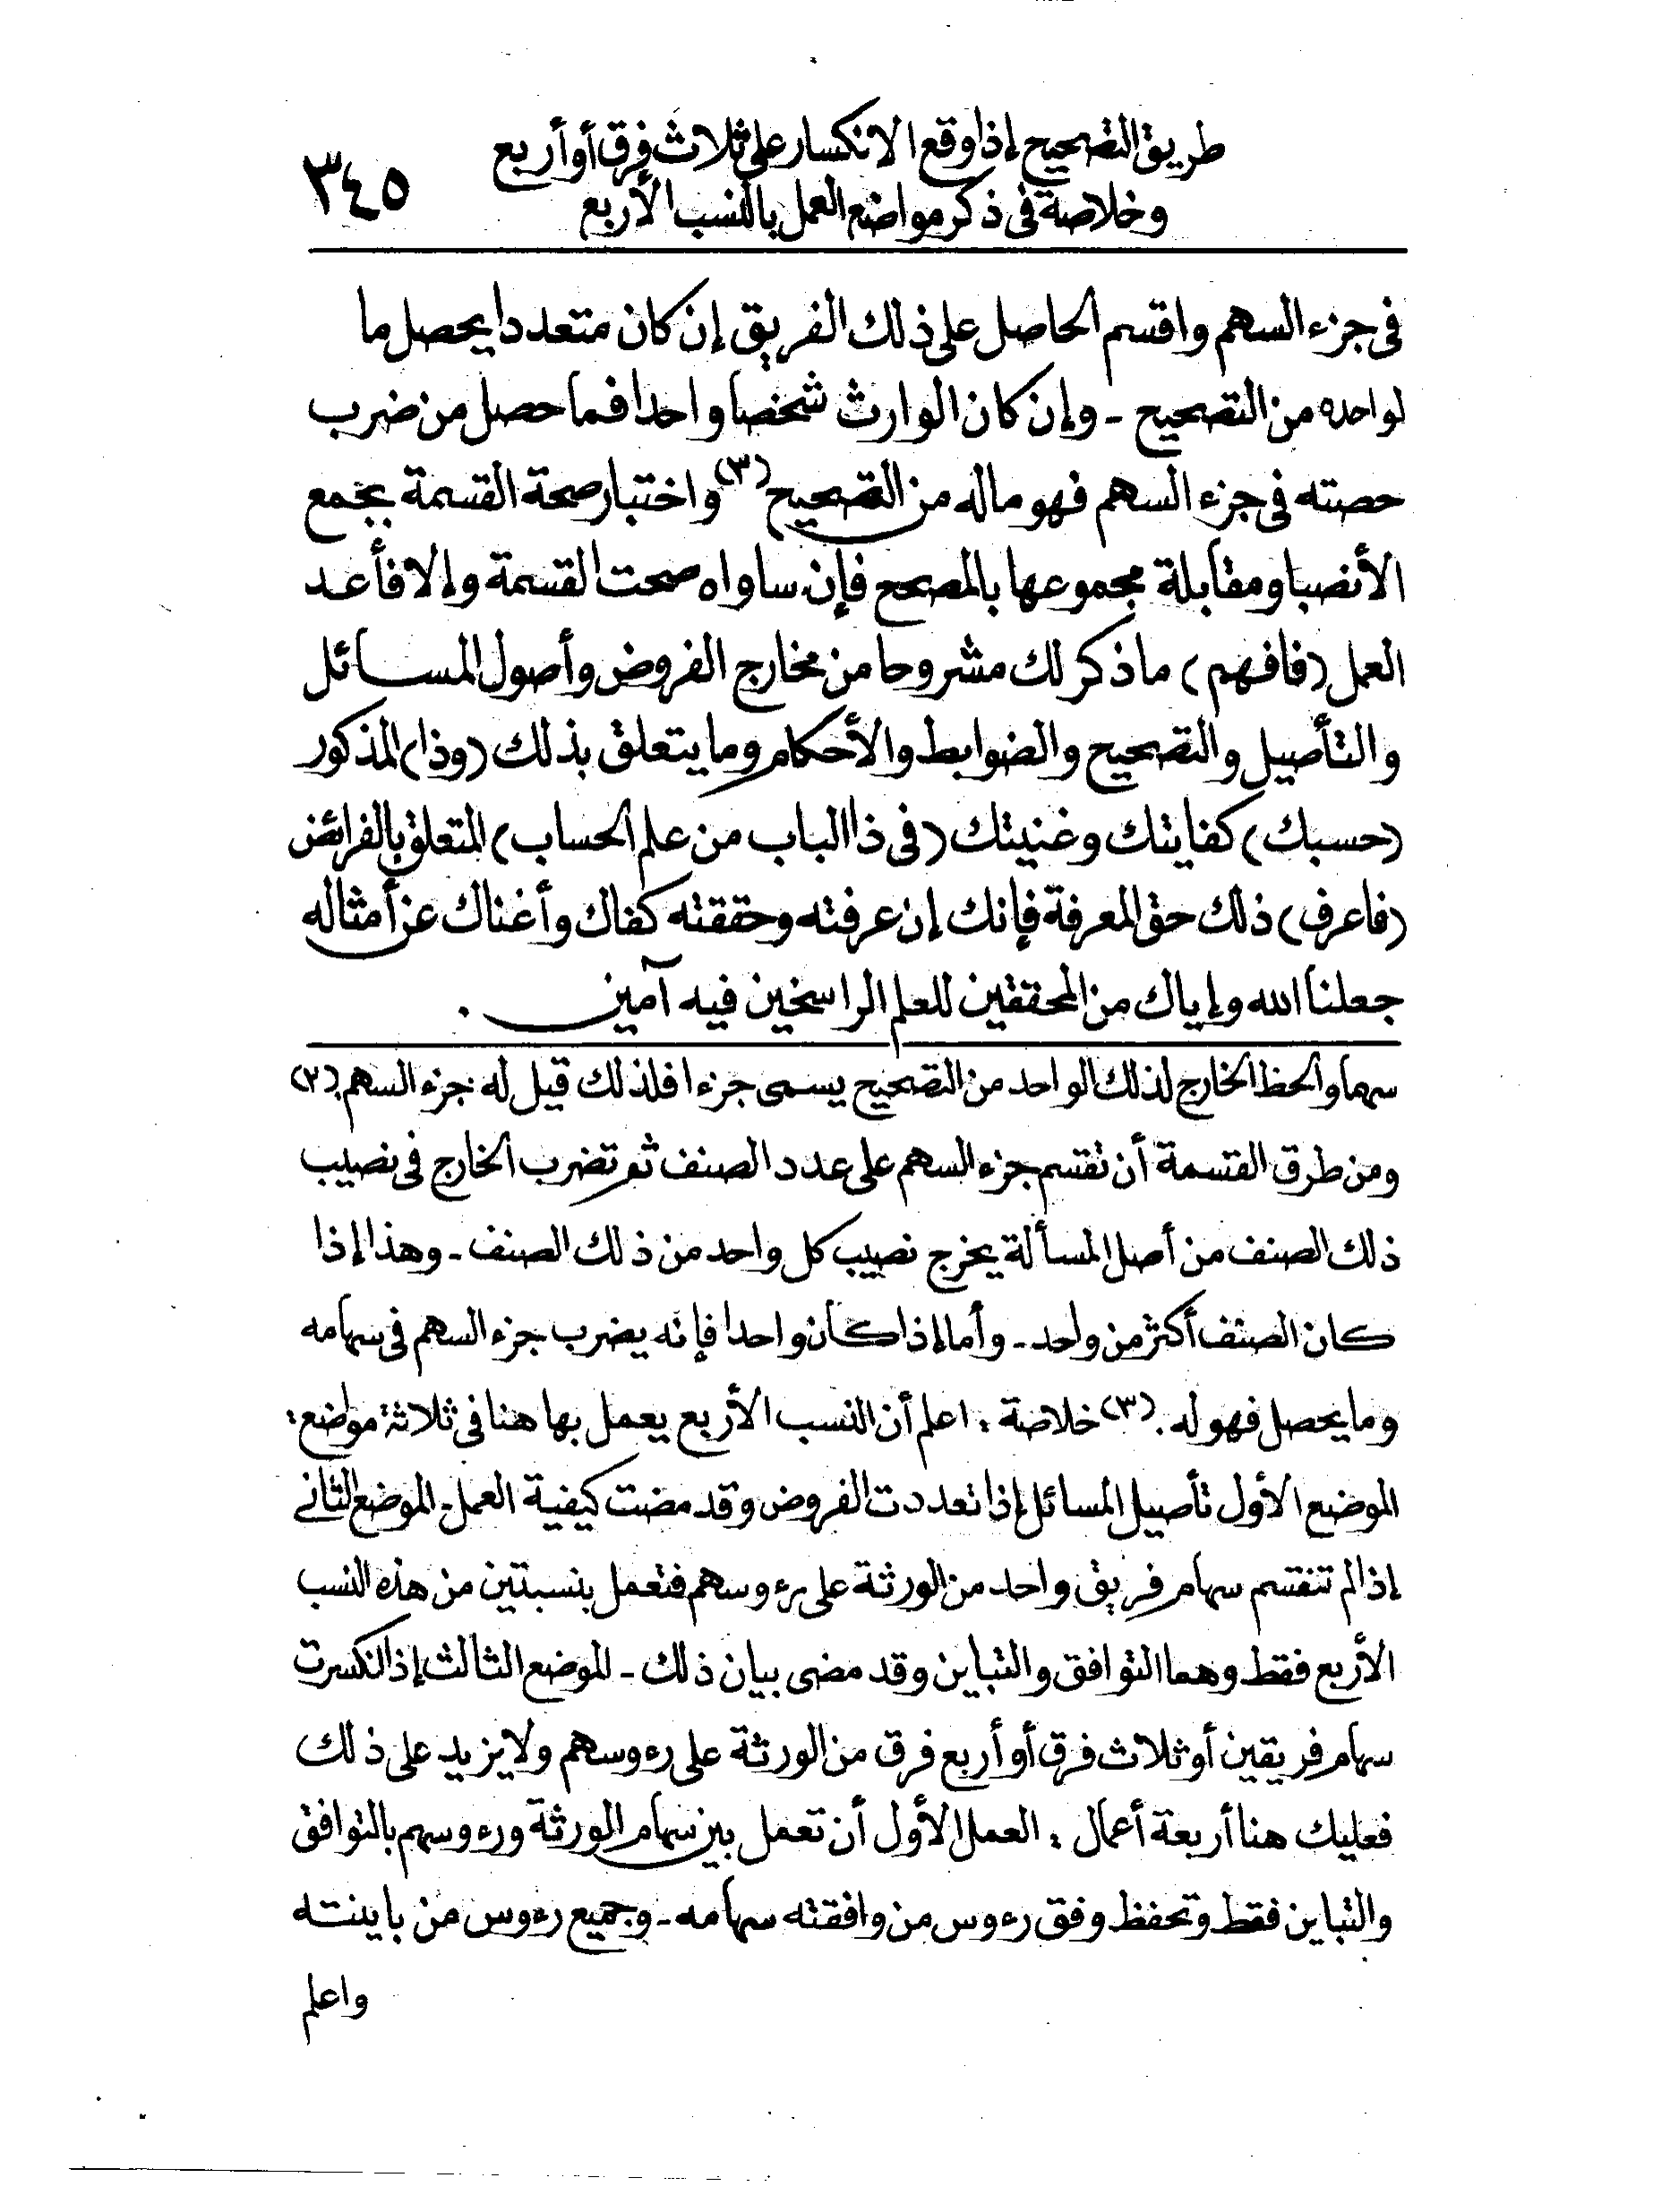 طريق التصحيح إذا وقع الانكسار على ثلاث فرق أو أربع
وخلاصة فى ذكر مواضع العمل بالنسب الأربع
٣٤٥
فى جزء السهم واقسم الحاصل على ذلك الفريق إن كان متعددا يحصل ما
لواحده من التصحيح - وإن كان الوارث شخصا واحدا فما حصل من ضرب
حصته فى جزء السهم فهو ماله من التصحيح (٣) واختبار صحة القسمة بجمع
الأنصبا ومقابلة مجموعها بالمصحح فإن ساواه صحت القسمة وإلا فأعد
العمل (فافهم) ما ذكر لك مشروحا من مخارج الفروض وأصول المسائل
والتأصيل والتصحيح والضوابط والأحكام وما يتعلق بذلك (وذا) المذكور
(حسبك) كفايتك وغنيتك (فى ذا الباب من علم الحساب) المتعلق بالفرائض
(فاعرف) ذلك حق المعرفة فإنك إن عرفته وحققته كفاك وأغناك عن أمثاله
جعلنا الله وإياك من المحققين للعلم الراسخين فيه آمين .
سهما والحظ الخارج لذلك الواحد من التصحيح يسمى جزءا فلذلك قيل له جزء السهم. (٢)
ومن طرق القسمة أن تقسم جزء السهم على عدد الصنف ثم تضرب الخارج فى نصيب
ذلك الصنف من أصل المسألة يخرج نصيب كل واحد من ذلك الصنف - وهذا إذا
كان الصنف أكثر من واحد - وأما إذا كان واحدا فإنه يضرب جزء السهم فى سهامه
وما يحصل فهو له . (٣) خلاصة : اعلم أن النسب الأربع يعمل بها هنا فى ثلاثة مواضع :
الموضع الأول تأصيل المسائل إذا تعددت الفروض وقد مضت كيفية العمل - الموضع الثانى
إذا لم تنقسم سهام فريق واحد من الورثة على رءوسهم فتعمل بنسبتين من هذه النسب
الأربع فقط وهما التوافق والتباين وقد مضى بيان ذلك - الموضع الثالث إذا انكسرت
سهام فريقين أو ثلاث فرق أو أربع فرق من الورثة على رءوسهم ولا يزيد على ذلك
فعليك هنا أربعة أعمال : العمل الأول أن تعمل بين سهام الورثة ورءوسهم بالتوافق
والتباين فقط وتحفظ وفق رءوس من وافقته سهامه - وجميع رءوس من باينته
واعلم